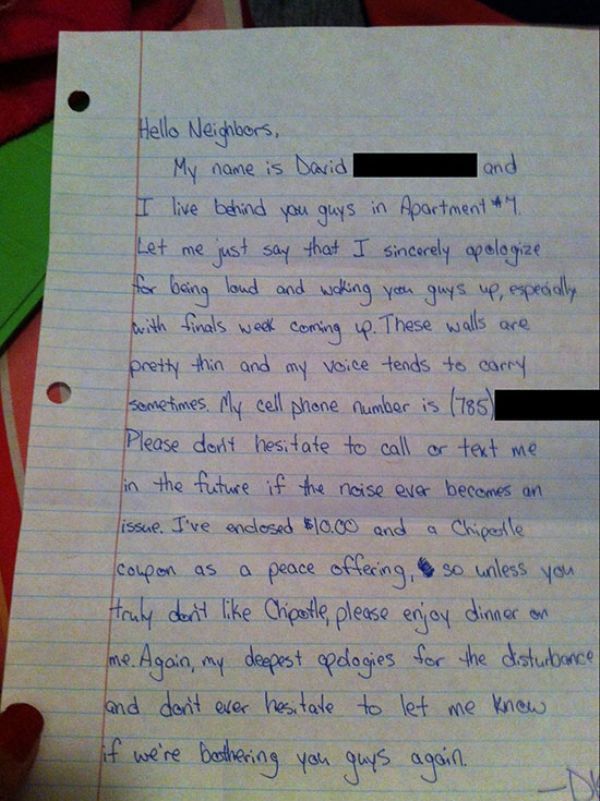 Hello Neighbors,
My name is David and
I live behind you guys in Apartment #7.
Let me just say that I sincerely apologize
for being loud and waking you guys up, especially
with finals week coming up. These walls are
pretty thin and my voice tends to carry
sometimes. My cell phone number is (785)
Please don't hesitate to call or text me
in the future if the noise ever becomes an
issue. I've enclosed $10.00 and a Chipotle
coupon as a peace offering, so unless you
truly don't like Chipotle, please enjoy dinner on
me. Again, my deepest apologies for the disturbance
and don't ever hesitate to let me know
if we're boothering you guys again.